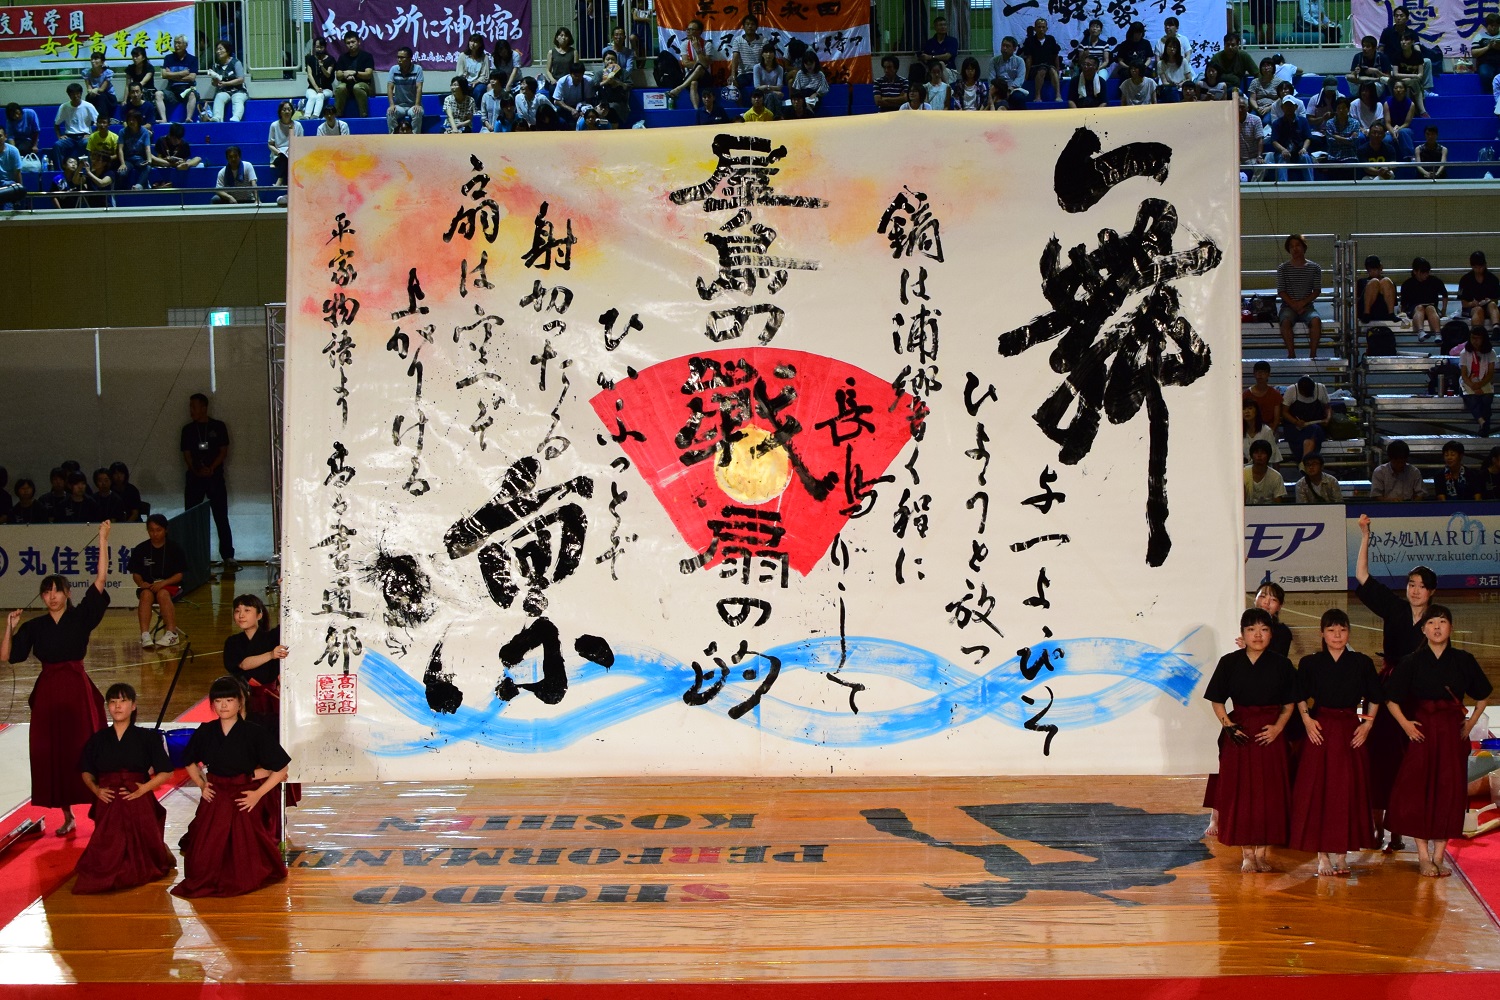 校成学園
女子高等学校
細かい所に神は宿る
美の国秋田
一舞
与一よっぴいて
ひょうと放つ
鏑は浦響く程に
長鳴りして
屋島の戦 扇の的
ひいふつとぞ
射切つたる
扇は空へぞ
上がりける
凛
平家物語より
書道部
丸住製
カミ商事株式会社
かみ処MARUI S
http://www.rakuten.co
SHODO
PERFORMANCE
KOSHIEN